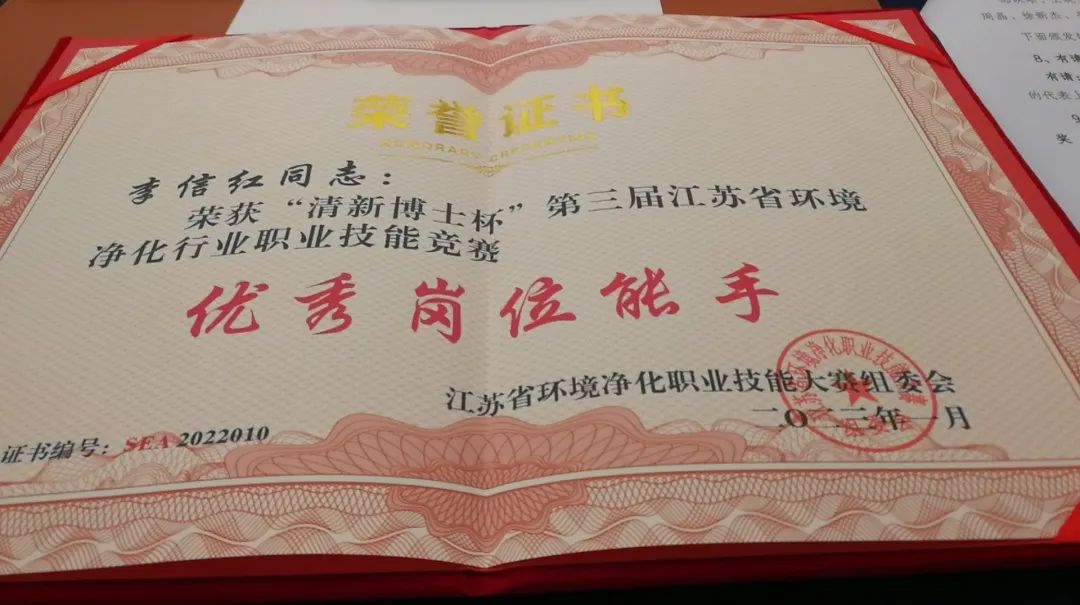 荣誉证书
HONORARY CREDENTIAL
李信红同志：
荣获“清新博士杯”第三届江苏省环境
净化行业职业技能竞赛
优秀岗位能手
江苏省环境净化职业技能大赛组委会
二〇二三年一月
证书编号：SEA 2022010
周磊、徐新杰、
下面颁发
8、有请
有请：
的代表上
9
奖